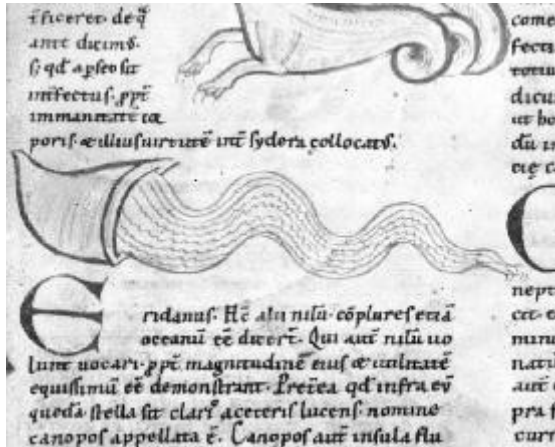 ifficeret. de q̄
ante dicim᷒.
s; qđ a pseo sit
infectus. ꝓpt̄
immanitatē cor
poris. & illius uirtutē int̄ sydera collocatꝰ.
Eridanus. Hc̄ alii nilū. cōplures etiā
oceanū eē dixer̄t. Qui aut̄ nilū uo
lunt uocari. ꝓpt̄ magnitudinē eius & utilitatē
equissimū eē demonstrant. Pret̄ea qđ infra eū
quedā stella sit clariꝰ a ceteris lucens. nomine
canopos appellata ē. Canopos aut̄ insula flu
come
fecta
totiu
dicu
ut ho
dū in
cię c
nept
cit. e
minu
natu
aut̄
pra f
curr